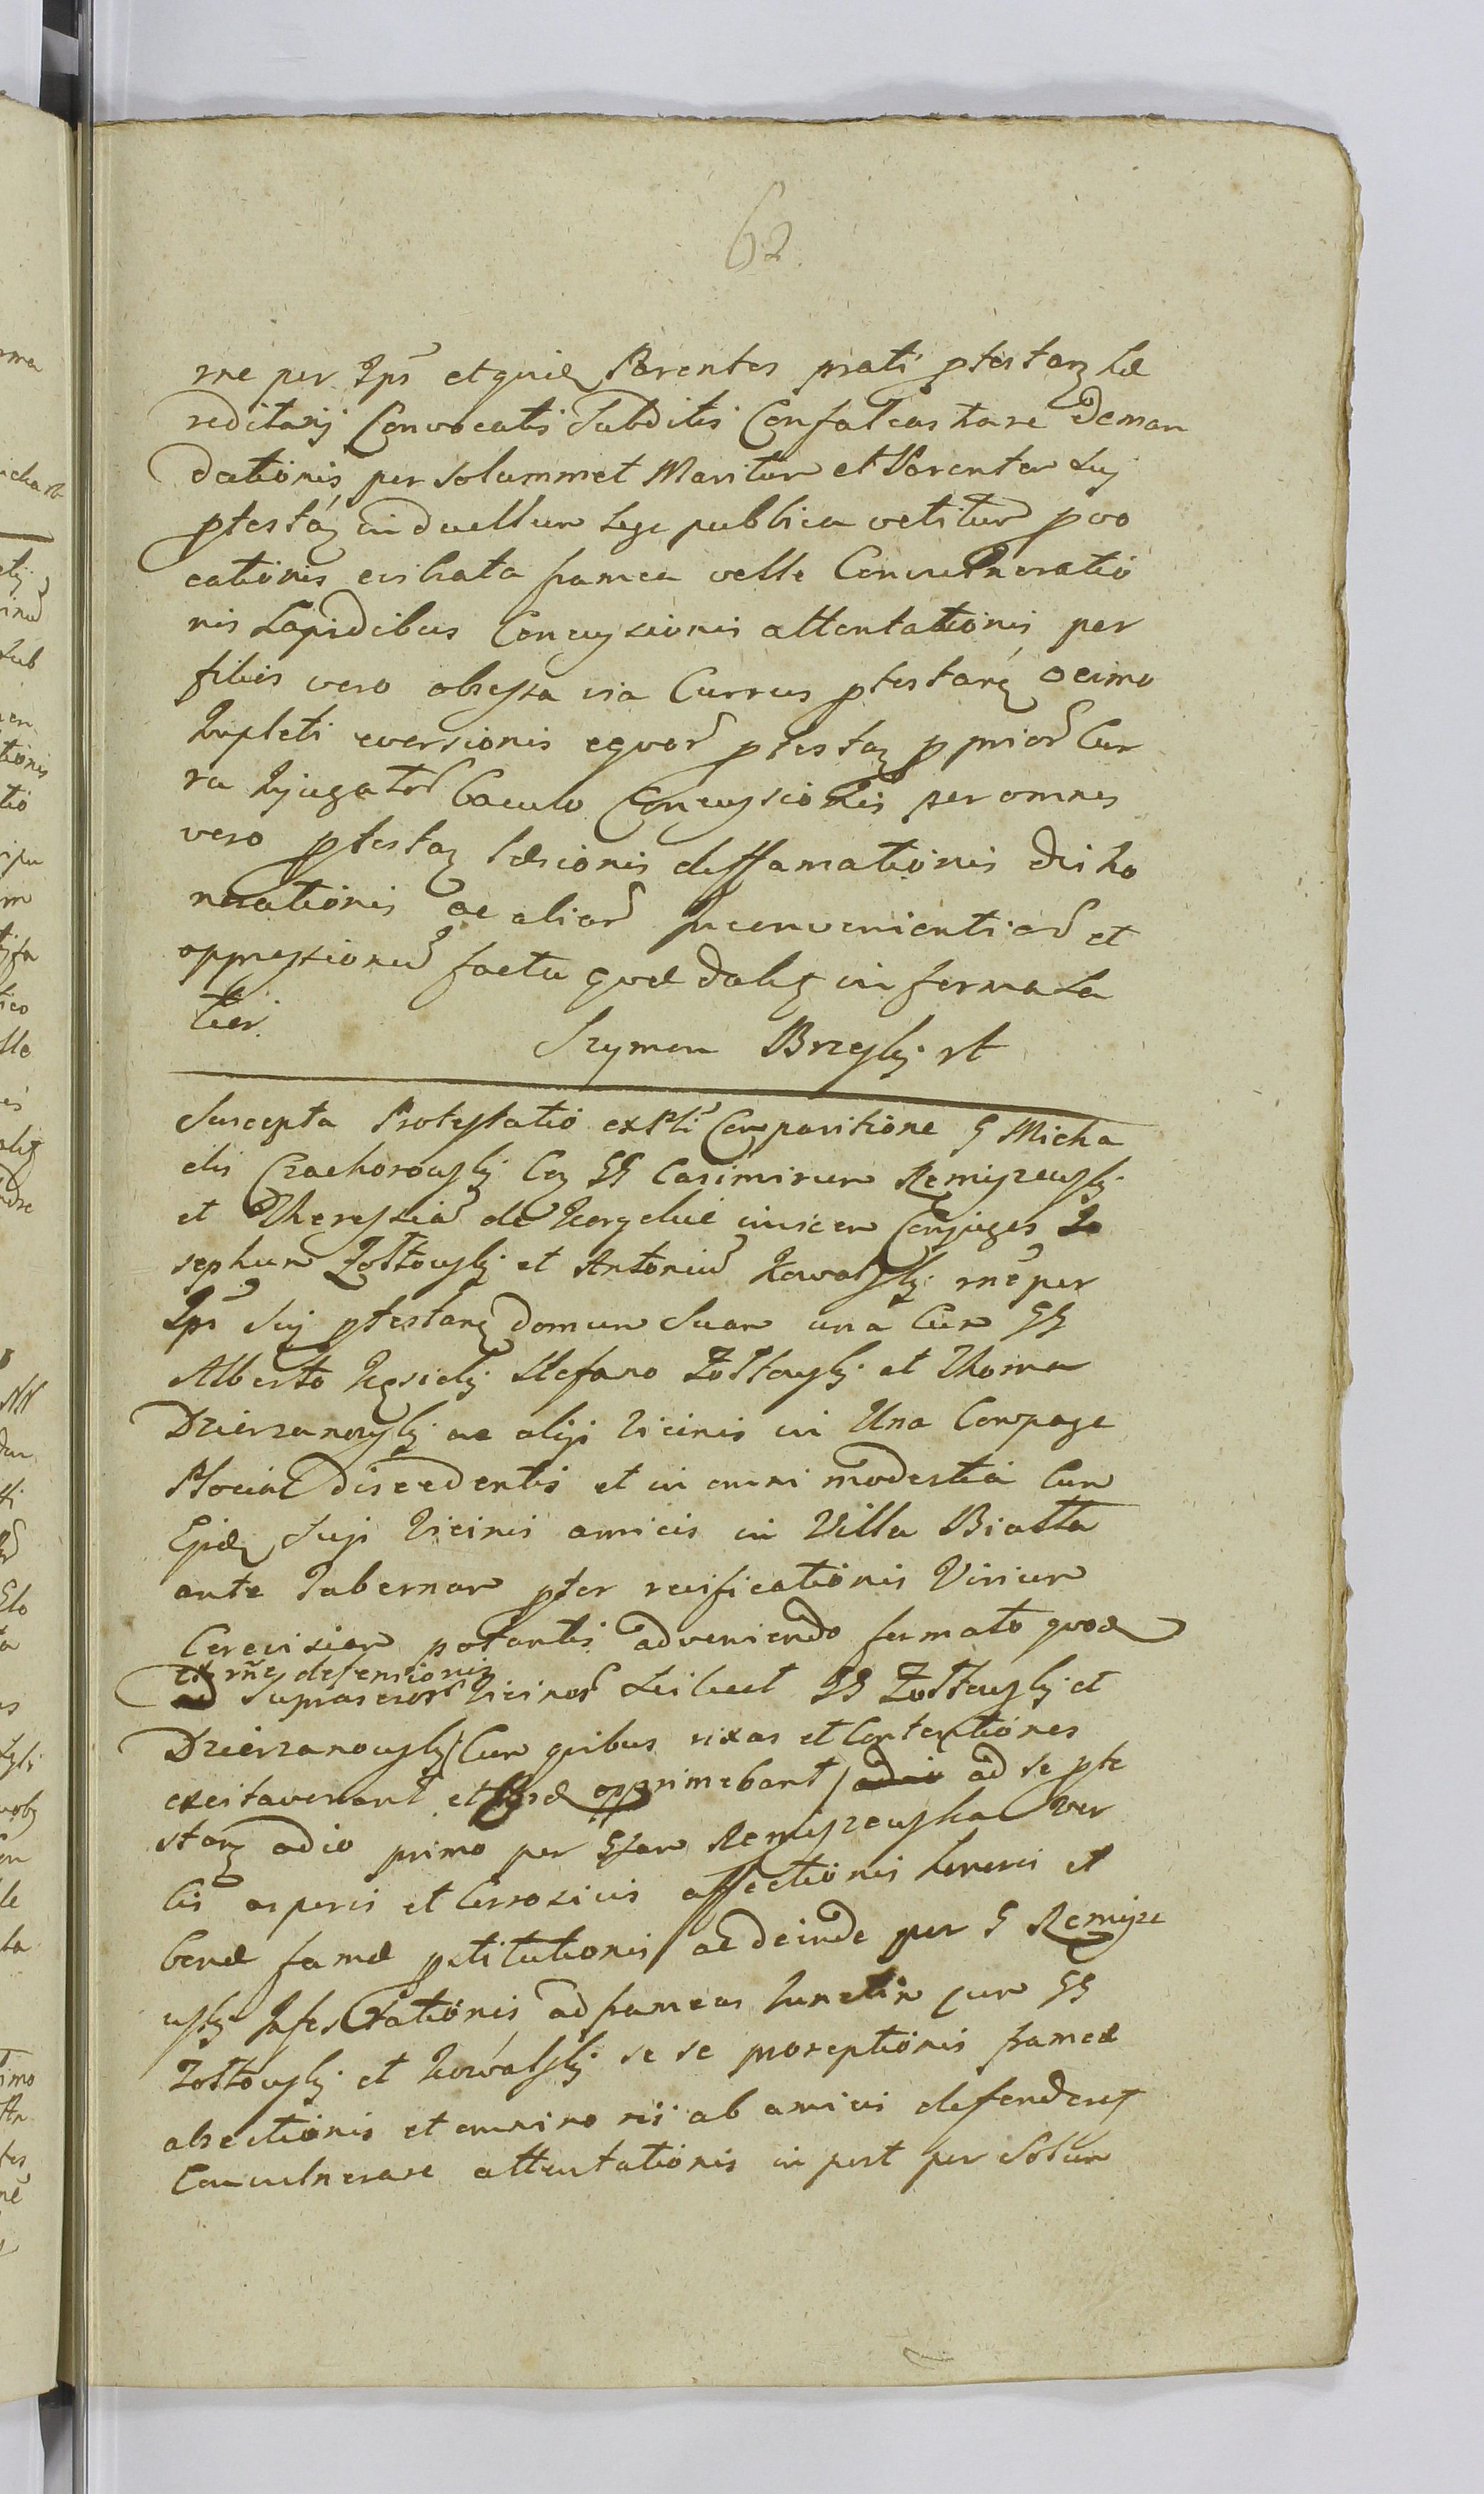 62
rne per Ips et quid Parentes prati ptestanz hæ
reditarij Convocatis Subditis Confalcastrare Deman
dationis, per solummet Maritum et Parentem suj
ptestaz in duellum lege publica vetitum pvo
cationis evibrata framea velle Convulneratio
nis Lapidibus Concussionis attentationis, per
filios vero obsessa via Currus ptestanz
eversionis equor ptestaz p Cur
ru Injugator baculo Concussionis per omnes
vero ptestaz læsionis diffamationis
nerationis ac alior Inconvenientior et
oppressionu facta quæ dalsz in forma la
tior.
Szymon Brzeski mp
Suscepta Protestatio ex Pli Comparitione G Micha
elis Czachorowski Coz GG Casimirum Remiszewski
et Theressia de invicem Conjuges Jo
sephum Zołtowski et Antoniu Kowalski rne per
Ips suj ptestanz domum suam una Cum GG
Alberto Stefano Zołtowski et Thoma
Dzierzanowski ac alijs Vicinis in Una Compage
Plocia discedentis et in omni modestia Cum
Ejsdz Sujs Vicinis amicis in Villa Biała
ante Tabernam pter reificationis Virium
Cerevisiam potantis adveniendo fermato quod
et rne defensionis
ad suprascror Vicinor Scilicet GG Zołtowski et
Dzierzanowski / Cum quibus rixas et Contentiones
excitaverant et opprimebant / ad se pte
stanz odio primo per Gsam Remiszewska ver
bis asperis et Corrosivis affectionis honoris et
bonæ famæ pstitutionis / ac deinde per G Remisze
wski Infestationis, ad frameas Cum GG
Zołtowski et Kowalski se se proreptionis frameæ
absectionis et omnino ni ab amicis defenderes
Convulnerare attentationis in post per Solum